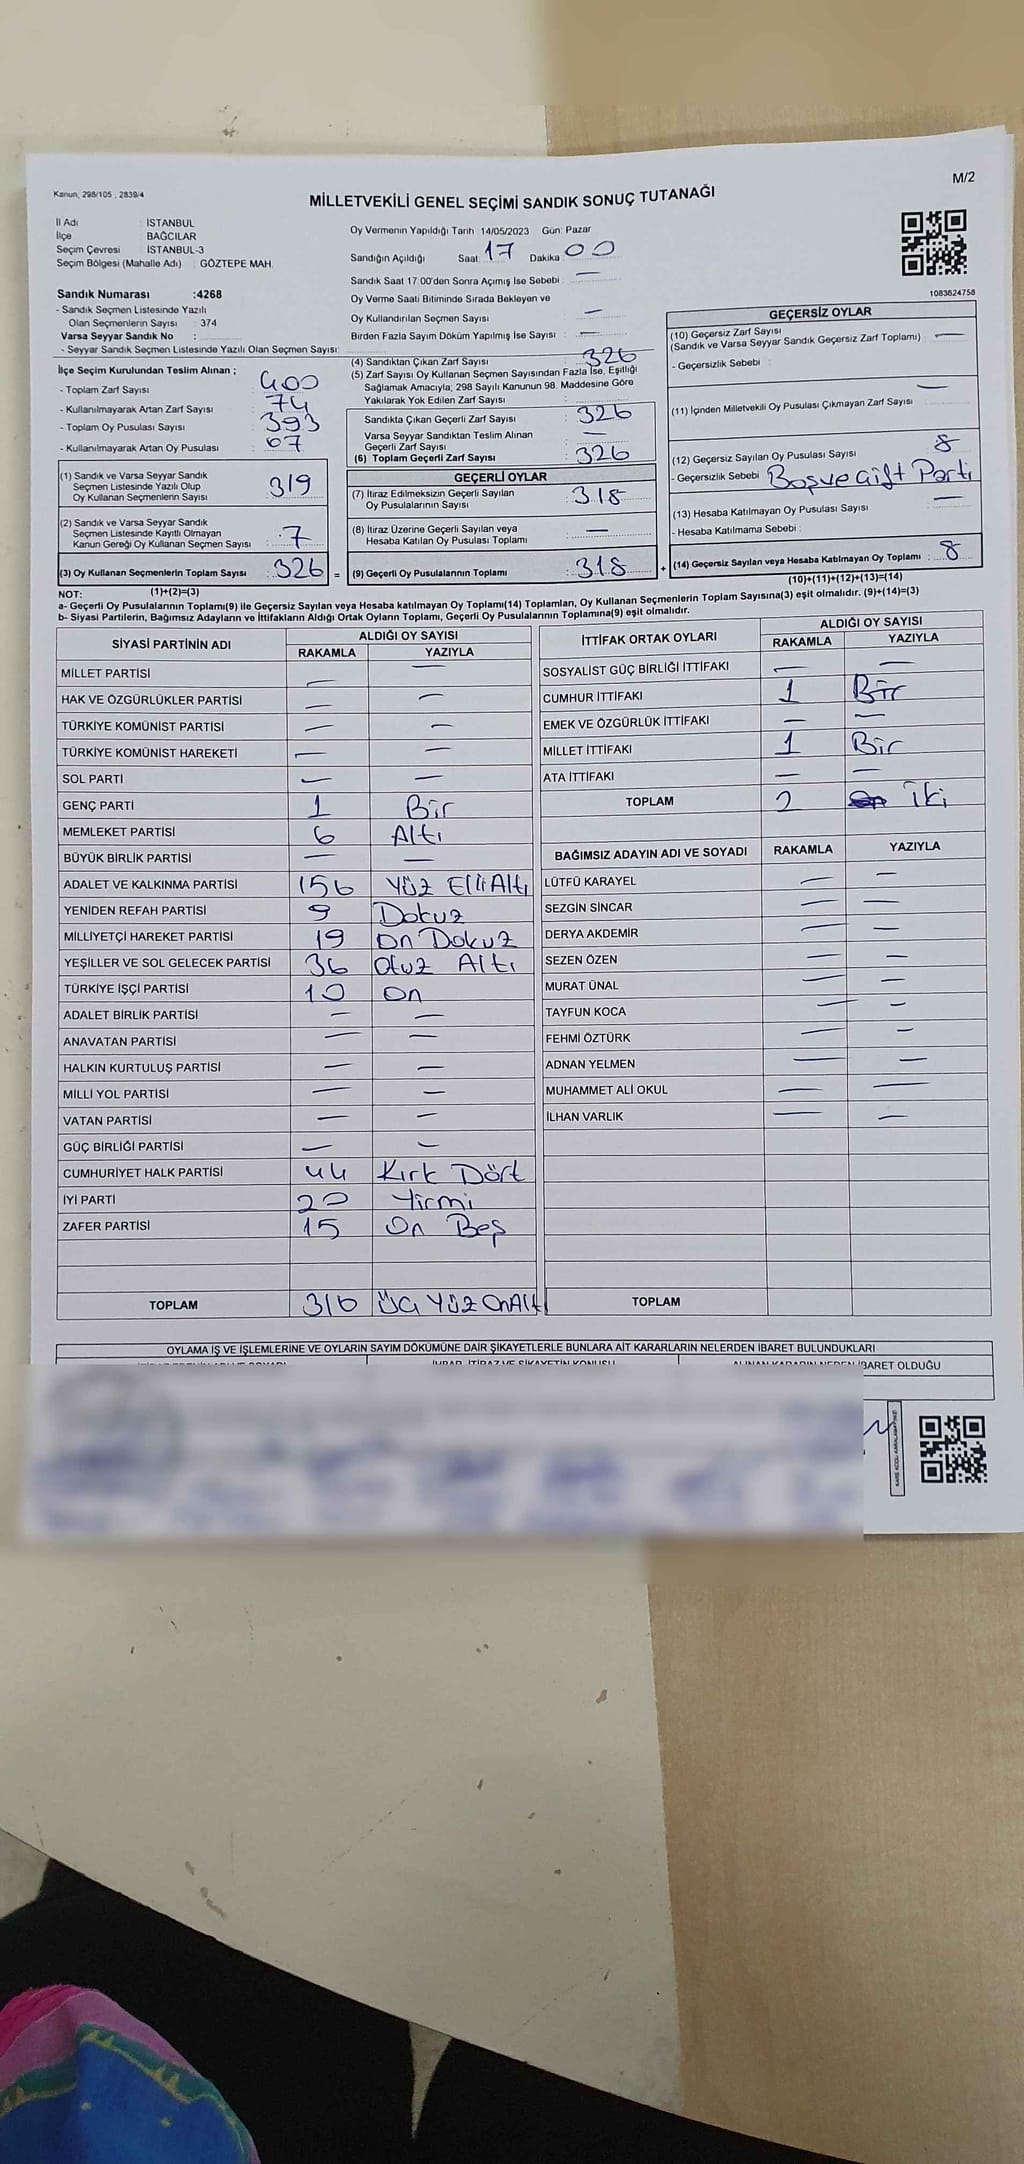 Kanun, 298/105 , 2839/4
M/2
MİLLETVEKİLİ GENEL SEÇİMİ SANDIK SONUÇ TUTANAĞI
İl Adı : İSTANBUL
İlçe : BAĞCILAR
Seçim Çevresi : İSTANBUL-3
Seçim Bölgesi (Mahalle Adı) : GÖZTEPE MAH.
Sandık Numarası :4268
- Sandık Seçmen Listesinde Yazılı
Olan Seçmenlerin Sayısı : 374
Varsa Seyyar Sandık No :
- Seyyar Sandık Seçmen Listesinde Yazılı Olan Seçmen Sayısı:
Oy Vermenin Yapıldığı Tarih 14/05/2023 Gün: Pazar
Sandığın Açıldığı Saat: 17 Dakika: 00
Sandık Saat 17:00'den Sonra Açımış İse Sebebi : —
Oy Verme Saati Bitiminde Sırada Bekleyen ve
Oy Kullandırılan Seçmen Sayısı : —
Birden Fazla Sayım Döküm Yapılmış İse Sayısı : —
1083624758
İlçe Seçim Kurulundan Teslim Alınan ;
- Toplam Zarf Sayısı : 400
- Kullanılmayarak Artan Zarf Sayısı : 74
- Toplam Oy Pusulası Sayısı : 393
- Kullanılmayarak Artan Oy Pusulası : 67
(1) Sandık ve Varsa Seyyar Sandık
Seçmen Listesinde Yazılı Olup
Oy Kullanan Seçmenlerin Sayısı : 319
(2) Sandık ve Varsa Seyyar Sandık
Seçmen Listesinde Kayıtlı Olmayan
Kanun Gereği Oy Kullanan Seçmen Sayısı : 7
(3) Oy Kullanan Seçmenlerin Toplam Sayısı : 326 =
(4) Sandıktan Çıkan Zarf Sayısı : 326
(5) Zarf Sayısı Oy Kullanan Seçmen Sayısından Fazla İse, Eşitliği
Sağlamak Amacıyla; 298 Sayılı Kanunun 98. Maddesine Göre
Yakılarak Yok Edilen Zarf Sayısı :
Sandıkta Çıkan Geçerli Zarf Sayısı : 326
Varsa Seyyar Sandıktan Teslim Alınan
Geçerli Zarf Sayısı : —
(6) Toplam Geçerli Zarf Sayısı : 326
GEÇERLİ OYLAR
(7) İtiraz Edilmeksizin Geçerli Sayılan
Oy Pusulalarının Sayısı : 318
(8) İtiraz Üzerine Geçerli Sayılan veya
Hesaba Katılan Oy Pusulası Toplamı : —
(9) Geçerli Oy Pusulalarının Toplamı : 318 +
GEÇERSİZ OYLAR
(10) Geçersiz Zarf Sayısı
(Sandık ve Varsa Seyyar Sandık Geçersiz Zarf Toplamı) : —
- Geçersizlik Sebebi :
—
(11) İçinden Milletvekili Oy Pusulası Çıkmayan Zarf Sayısı :
(12) Geçersiz Sayılan Oy Pusulası Sayısı : 8
- Geçersizlik Sebebi : Boş ve Çift Parti
(13) Hesaba Katılmayan Oy Pusulası Sayısı : —
- Hesaba Katılmama Sebebi :
(14) Geçersiz Sayılan veya Hesaba Katılmayan Oy Toplamı : 8
(10)+(11)+(12)+(13)=(14)
NOT: (1)+(2)=(3)
a- Geçerli Oy Pusulalarının Toplamı(9) ile Geçersiz Sayılan veya Hesaba katılmayan Oy Toplamı(14) Toplamları, Oy Kullanan Seçmenlerin Toplam Sayısına(3) eşit olmalıdır. (9)+(14)=(3)
b- Siyasi Partilerin, Bağımsız Adayların ve İttifakların Aldığı Ortak Oyların Toplamı, Geçerli Oy Pusulalarının Toplamına(9) eşit olmalıdır.
SİYASİ PARTİNİN ADI ALDIĞI OY SAYISI
RAKAMLA YAZIYLA
MİLLET PARTİSİ — —
HAK VE ÖZGÜRLÜKLER PARTİSİ — —
TÜRKİYE KOMÜNİST PARTİSİ — —
TÜRKİYE KOMÜNİST HAREKETİ — —
SOL PARTİ — —
GENÇ PARTİ 1 Bir
MEMLEKET PARTİSİ 6 Altı
BÜYÜK BİRLİK PARTİSİ — —
ADALET VE KALKINMA PARTİSİ 156 Yüz Elli Altı
YENİDEN REFAH PARTİSİ 9 Dokuz
MİLLİYETÇİ HAREKET PARTİSİ 19 On Dokuz
YEŞİLLER VE SOL GELECEK PARTİSİ 36 Otuz Altı
TÜRKİYE İŞÇİ PARTİSİ 10 On
ADALET BİRLİK PARTİSİ — —
ANAVATAN PARTİSİ — —
HALKIN KURTULUŞ PARTİSİ — —
MİLLİ YOL PARTİSİ — —
VATAN PARTİSİ — —
GÜÇ BİRLİĞİ PARTİSİ — —
CUMHURİYET HALK PARTİSİ 44 Kırk Dört
İYİ PARTİ 20 Yirmi
ZAFER PARTİSİ 15 On Beş
TOPLAM 316 Üç Yüz On Altı
İTTİFAK ORTAK OYLARI ALDIĞI OY SAYISI
RAKAMLA YAZIYLA
SOSYALİST GÜÇ BİRLİĞİ İTTİFAKI — —
CUMHUR İTTİFAKI 1 Bir
EMEK VE ÖZGÜRLÜK İTTİFAKI — —
MİLLET İTTİFAKI 1 Bir
ATA İTTİFAKI — —
TOPLAM 2 İki
BAĞIMSIZ ADAYIN ADI VE SOYADI RAKAMLA YAZIYLA
LÜTFÜ KARAYEL — —
SEZGİN SİNCAR — —
DERYA AKDEMİR — —
SEZEN ÖZEN — —
MURAT ÜNAL — —
TAYFUN KOCA — —
FEHMİ ÖZTÜRK — —
ADNAN YELMEN — —
MUHAMMET ALİ OKUL — —
İLHAN VARLIK — —
TOPLAM
OYLAMA İŞ VE İŞLEMLERİNE VE OYLARIN SAYIM DÖKÜMÜNE DAİR ŞİKAYETLERLE BUNLARA AİT KARARLARIN NELERDEN İBARET BULUNDUKLARI
İHBAR, İTİRAZ VE ŞİKAYETİN KONUSU
ALINAN KARARIN NEDEN İBARET OLDUĞU